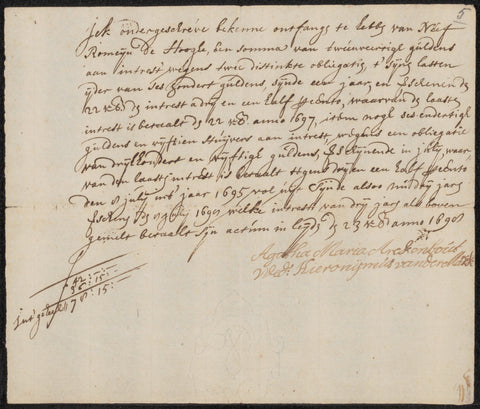 5
Jck ondergeschreve bekenne ontfangs te hebbe van Neef
Romeyn De Hooghe, een somma van tweenveertigh guldens
aan intrest wegens twee distinkte obligatiẽ t' syne lasten
yder van ses hondert guldens, synde een jaar
22 intrest a dry en een half pr Cento, waarvan de laaste
intrest is betaalt den 22 anno 1697, item nogh sesendertigh
guldens en vyftien stuyvers aan intrest, wegens een obligatie
van dryhondert en vyftigh guldens, in july, waar
van den laaste intrest is betaalt tegens dry en een half pr Cento
den 8 july int jaar 1695 vol uyt Synde alsoo nu dry jaer
den 8 july 1698 welke intrest van dry jaer als boven
gemelt betaalt syn actum in leyde den 23 anno 1698
Agatha Maria
Wed. Hieronymus vander
42 : — : —
36 : 15 : —
78 : 15 :